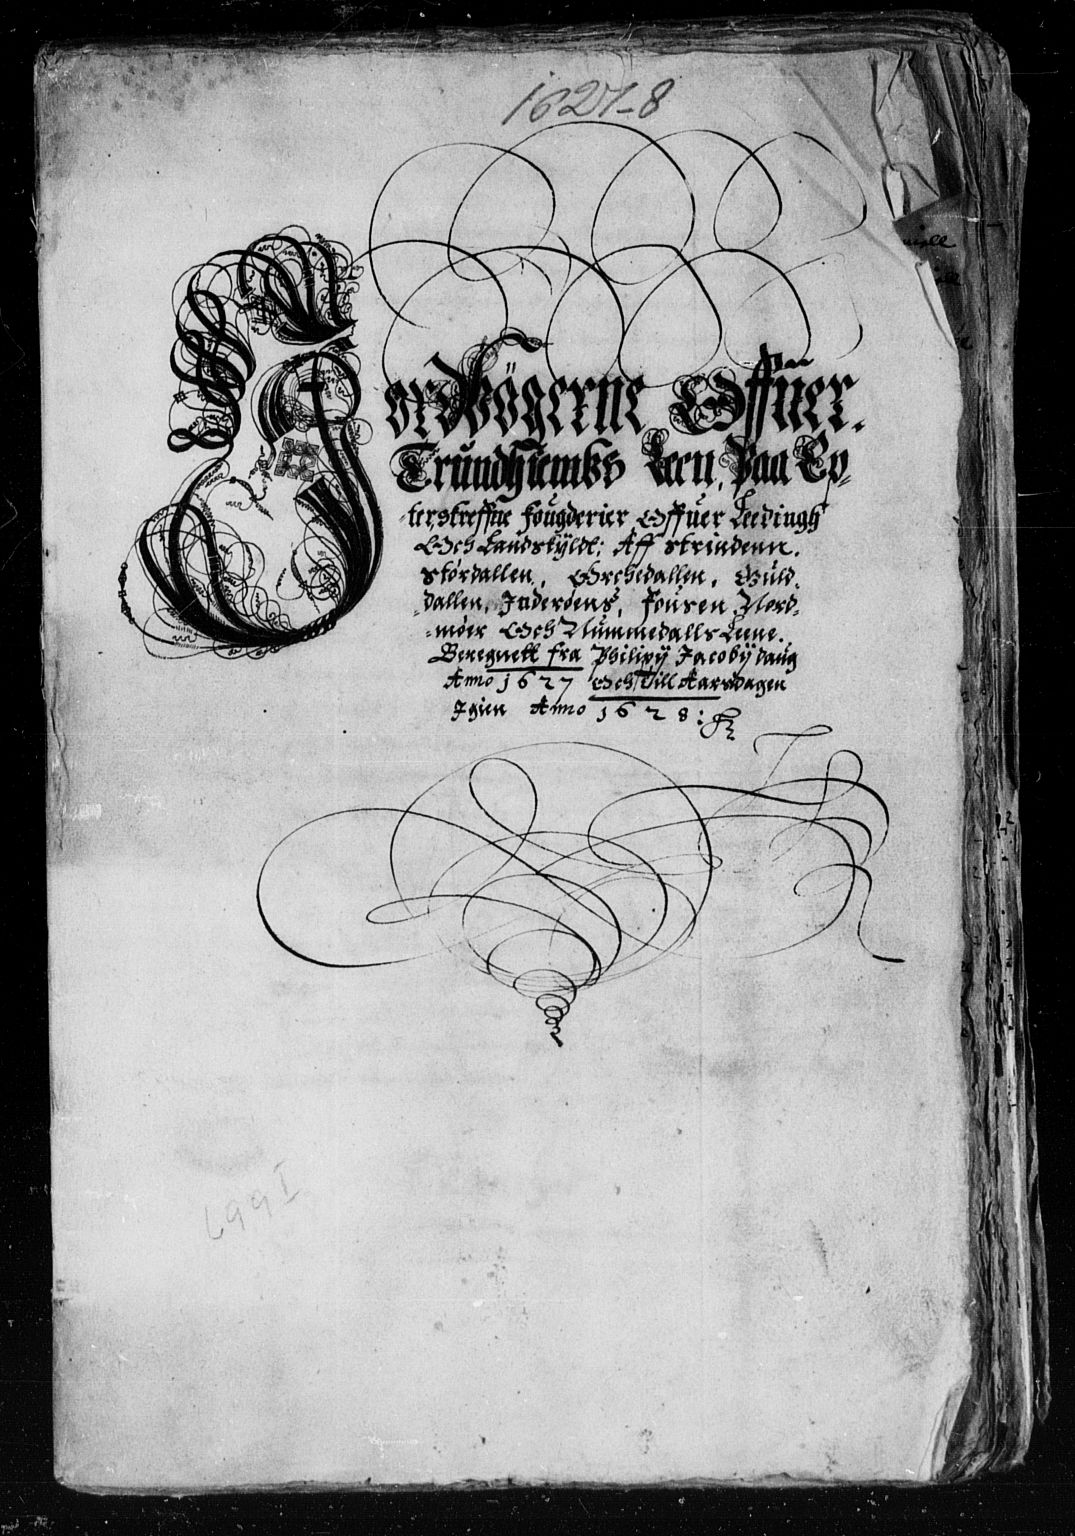 1627-8
JordBögerne Offuer.
Trundhiembs Leen, Paa Ep-
terstreffne fougderier Offuer Leedingh
Och Landskÿldt; Aff strindenn.
Stördallen, Orchedallen, Guld-
dallen, Inderöens, fousen Nord-
möer Och Nummedalls Leene.
Beregnett fra Philipÿ Jacobÿ daug
Anno 1627 Och Till Aarsdagen
Igien Anno 1628: